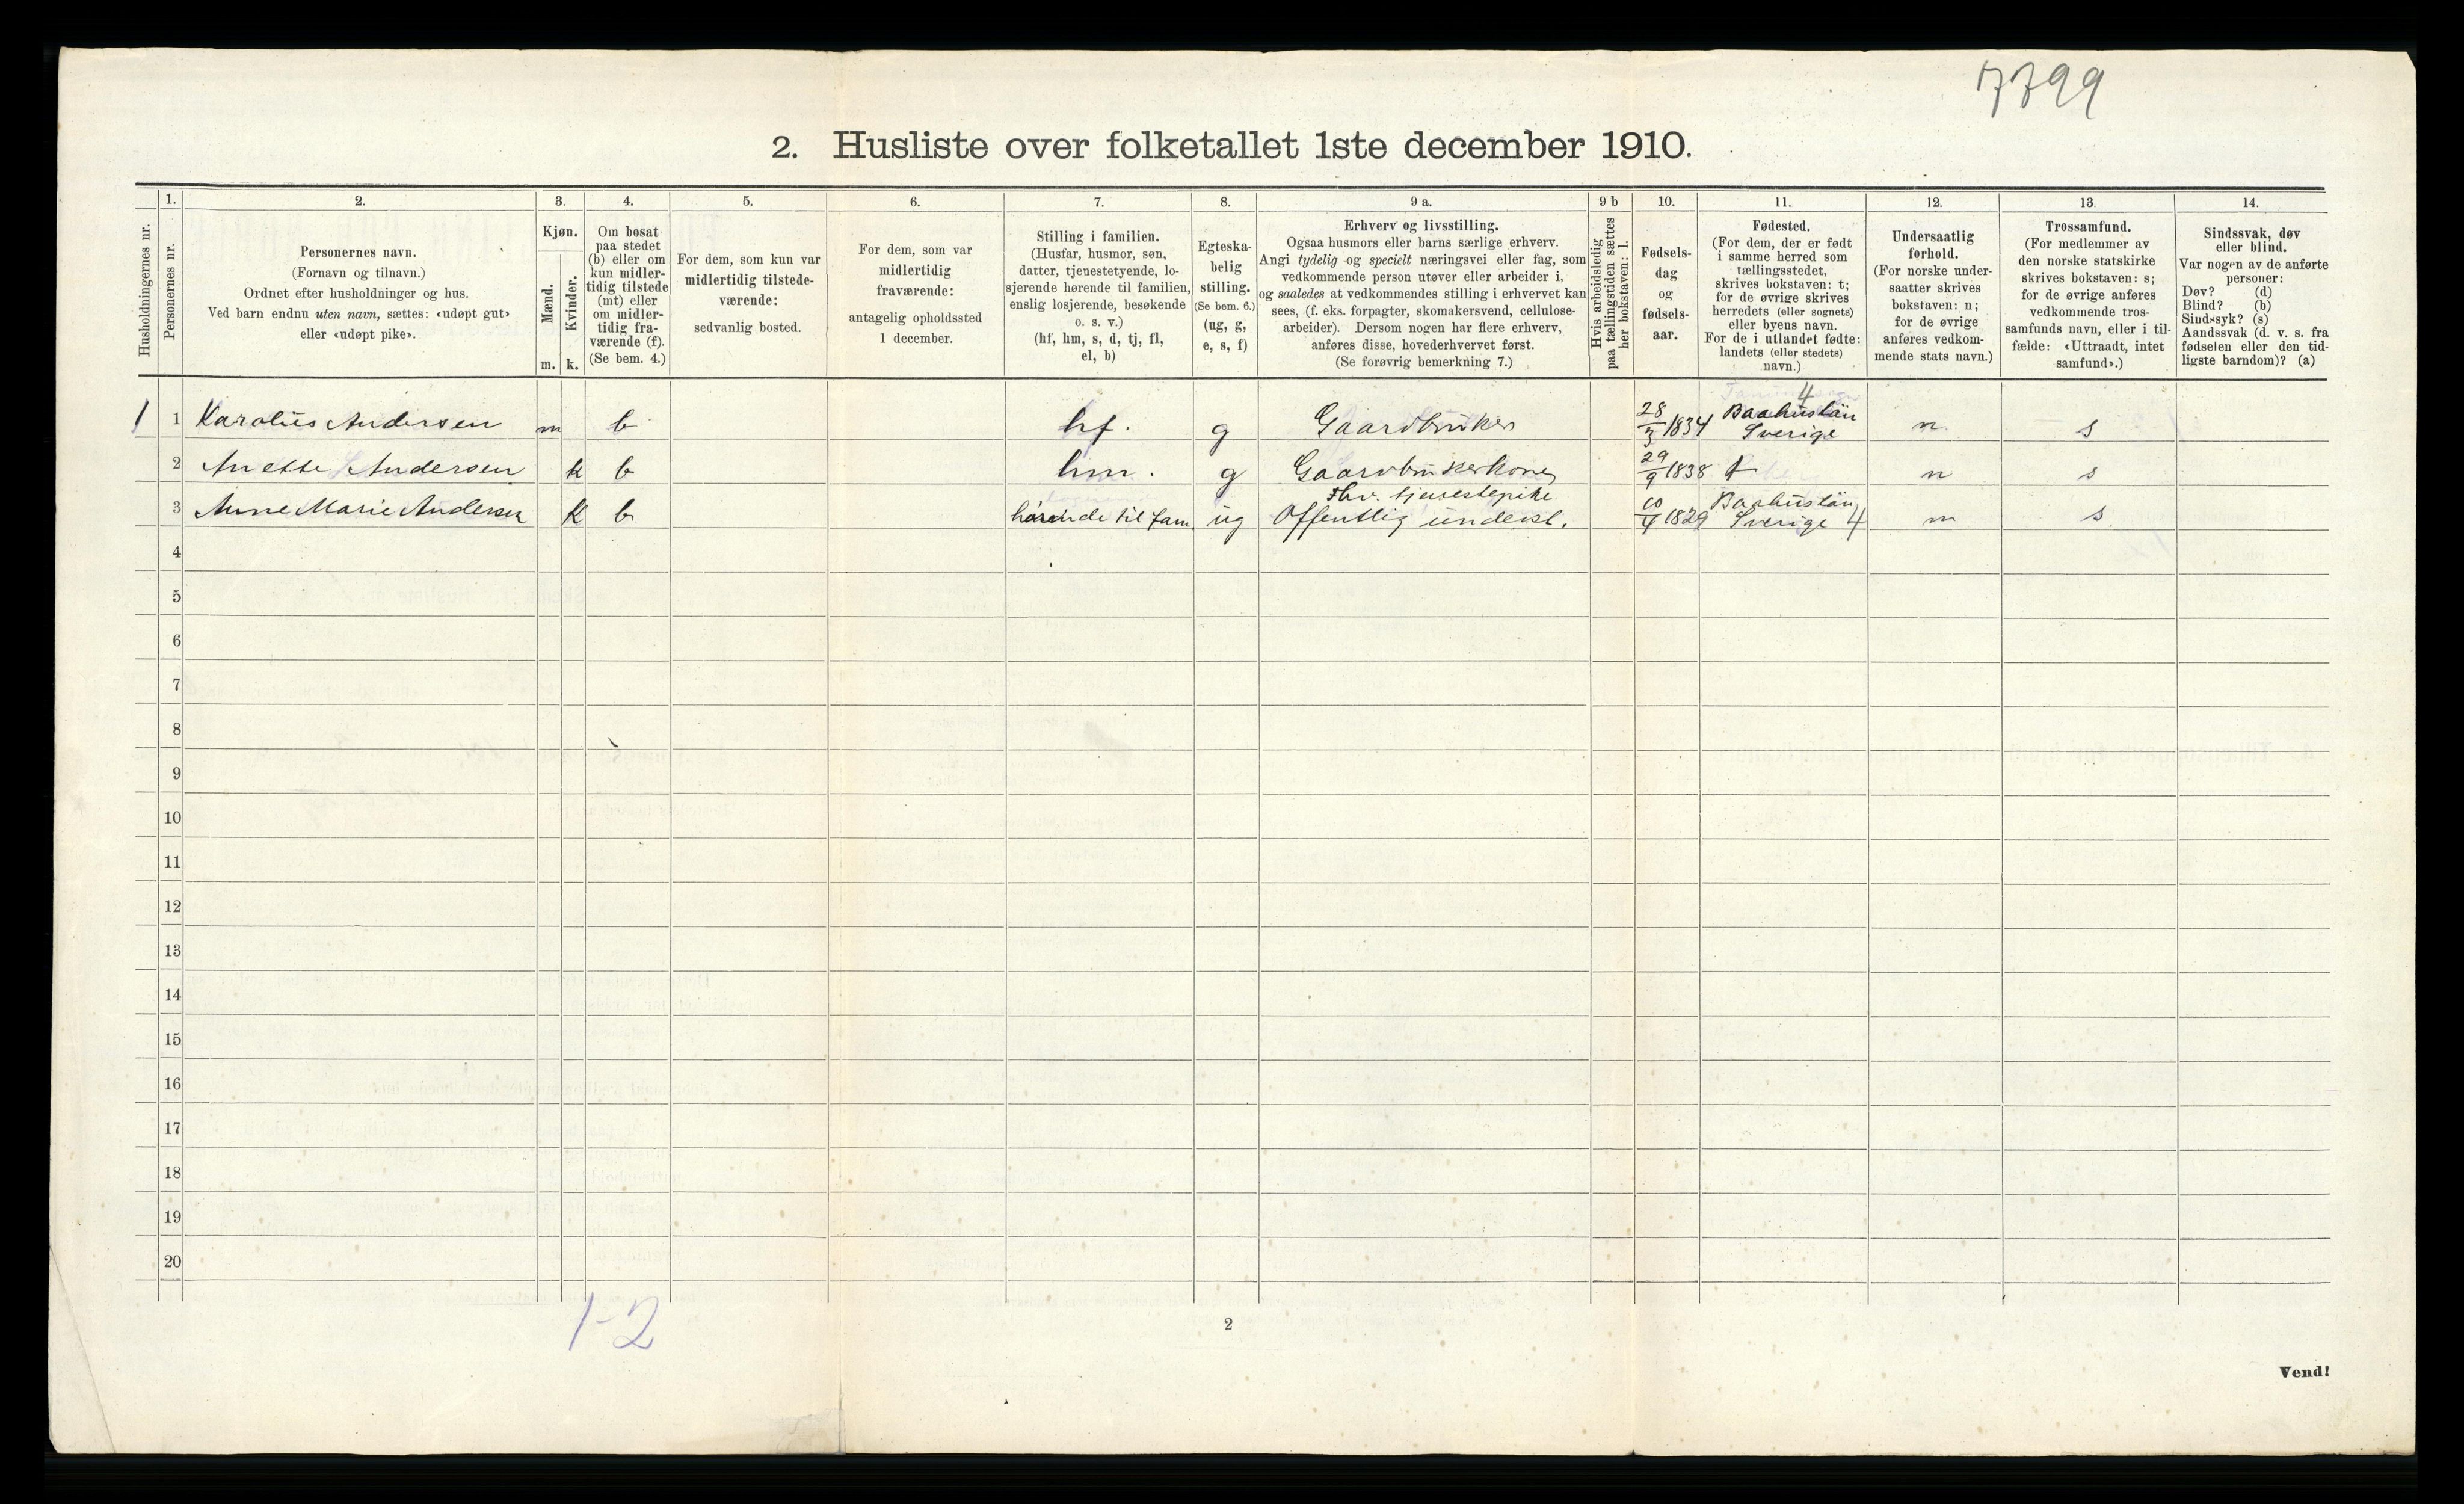 7799
2. Husliste over folketallet 1ste december 1910.
Husholdningernes nr.
1.
Personernes nr.
2.
Personernes navn.
(Fornavn og tilnavn.)
Ordnet efter husholdninger og hus.
Ved barn endnu uten navn, sættes: «udøpt gut»
eller «udøpt pike».
3.
Kjøn.
Mænd.
Kvinder.
m. k.
4.
Om bosat
paa stedet
(b) eller om
kun midler-
tidig tilstede
(mt) eller
om midler-
tidig fra-
værende (f).
(Se bem. 4.)
5.
For dem, som kun var
midlertidig tilstede-
værende:
sedvanlig bosted.
6.
For dem, som var
midlertidig
fraværende:
antagelig opholdssted
1 december.
7.
Stilling i familien.
(Husfar, husmor, søn,
datter, tjenestetyende, lo-
sjerende hørende til familien,
enslig losjerende, besøkende
o. s. v.)
(hf, hm, s, d, tj, fl,
el, b)
8.
Egteska-
belig
stilling.
(Se bem. 6.)
(ug, g,
e, s, f)
9 a.
Erhverv og livsstilling.
Ogsaa husmors eller barns særlige erhverv.
Angi tydelig og specielt næringsvei eller fag, som
vedkommende person utøver eller arbeider i,
og saaledes at vedkommendes stilling i erhvervet kan
sees, (f. eks. forpagter, skomakersvend, cellulose-
arbeider). Dersom nogen har flere erhverv,
anføres disse, hovederhvervet først.
(Se forøvrig bemerkning 7.)
9 b
Hvis arbeidsledig
paa tællingstiden sættes
her bokstaven: l.
10.
Fødsels-
dag
og
fødsels-
aar.
11.
Fødested.
(For dem, der er født
i samme herred som
tællingsstedet,
skrives bokstaven: t;
for de øvrige skrives
herredets (eller sognets)
eller byens navn.
For de i utlandet fødte:
landets (eller stedets)
navn.)
12.
Undersaatlig
forhold.
(For norske under-
saatter skrives
bokstaven: n;
for de øvrige
anføres vedkom-
mende stats navn.)
13.
Trossamfund.
(For medlemmer av
den norske statskirke
skrives bokstaven: s;
for de øvrige anføres
vedkommende tros-
samfunds navn, eller i til-
fælde: «Uttraadt, intet
samfund».)
14.
Sindssvak, døv
eller blind.
Var nogen av de anførte
personer:
Døv? (d)
Blind? (b)
Sindssyk? (s)
Aandssvak (d. v. s. fra
fødselen eller den tid-
ligste barndom)? (a)
1 1 Karolius Andersen m b hf. g Gaardbruker 28/3 1834 4 Baahuslän Sverige n s
2 Anette Andersen k b hm. g Gaardbrukerkone 29/9 1838 t n s
3 Anne Marie Andersen k b hørende til fam. ug Fhv. tjenestepike Offentlig underst. 10/4 1829 Baahuslän Sverige 4 n s
4
5
6
7
8
9
10
11
12
13
14
15
16
17
18
19
20
1-2
2
Vend!